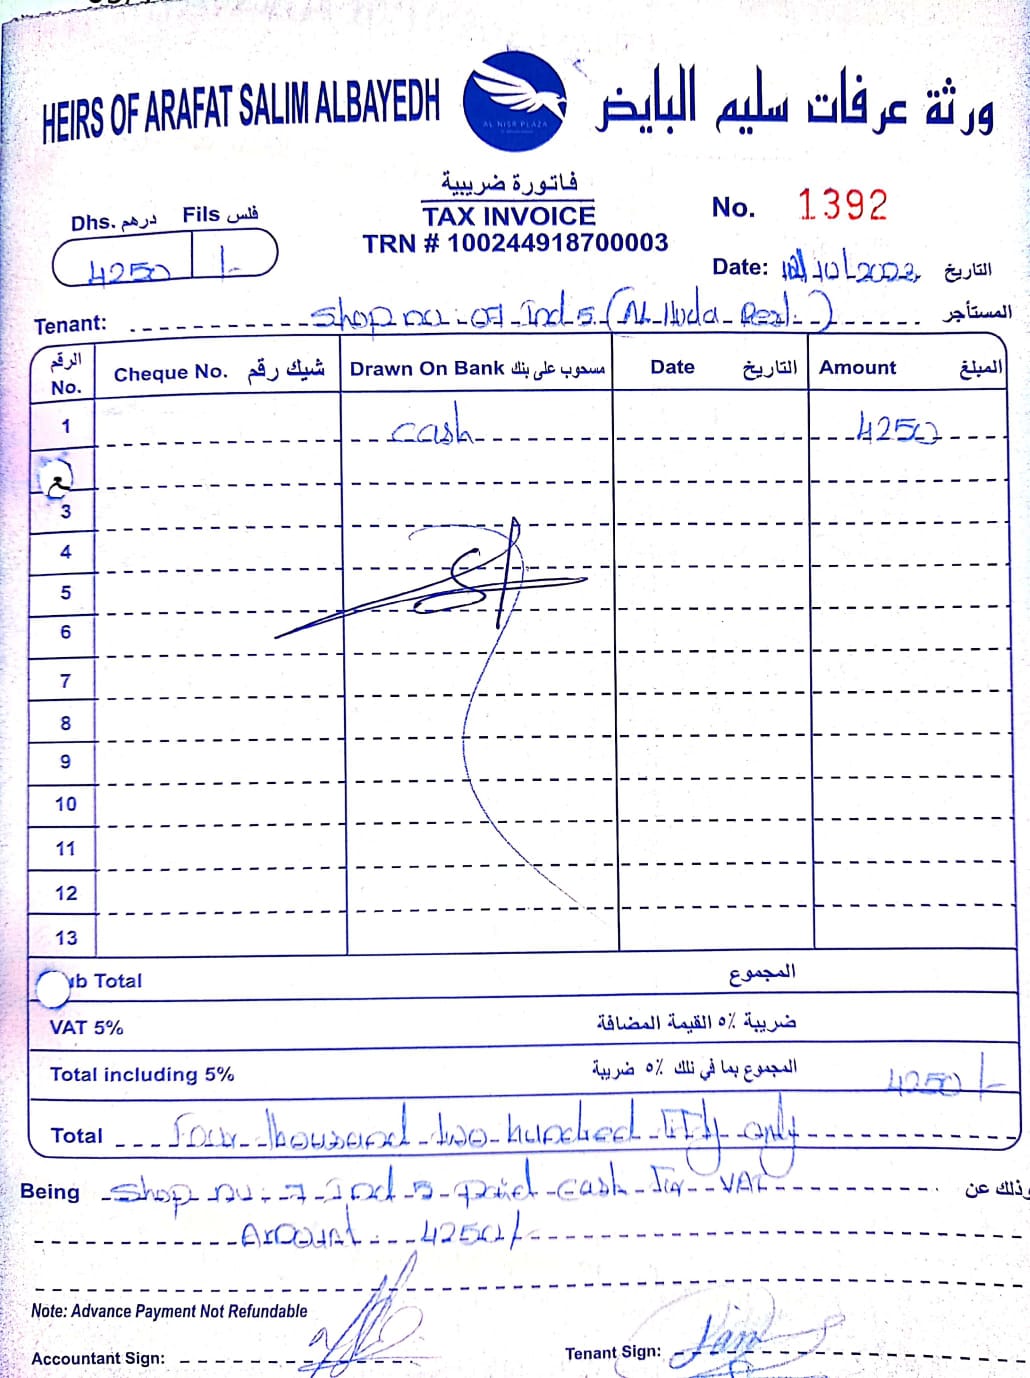 HEIRS OF ARAFAT SALIM ALBAYEDH
AL NISR PLAZA
ورثة عرفات سليم البايض
فاتورة ضريبية
TAX INVOICE
TRN # 100244918700003
Dhs. درهم Fils فلس
4250 /-
No. 1392
Date: /10/2022 التاريخ
Tenant: Shop no. 07 Ind 5 (Al Huda Rest.) المستأجر
الرقم No. Cheque No. شيك رقم Drawn On Bank مسحوب على بنك Date التاريخ Amount المبلغ
1 cash 4250
ع
3
4
5
6
7
8
9
10
11
12
13
ub Total المجموع
VAT 5% ضريبة ٥٪ القيمة المضافة
Total including 5% المجموع بما في ذلك ٥٪ ضريبة 4250/-
Total Four thousand two hundred fifty only
Being Shop no. 7 Ind 5 paid cash for VAT وذلك عن
Amount 4250/-
Note: Advance Payment Not Refundable
Accountant Sign:
Tenant Sign: